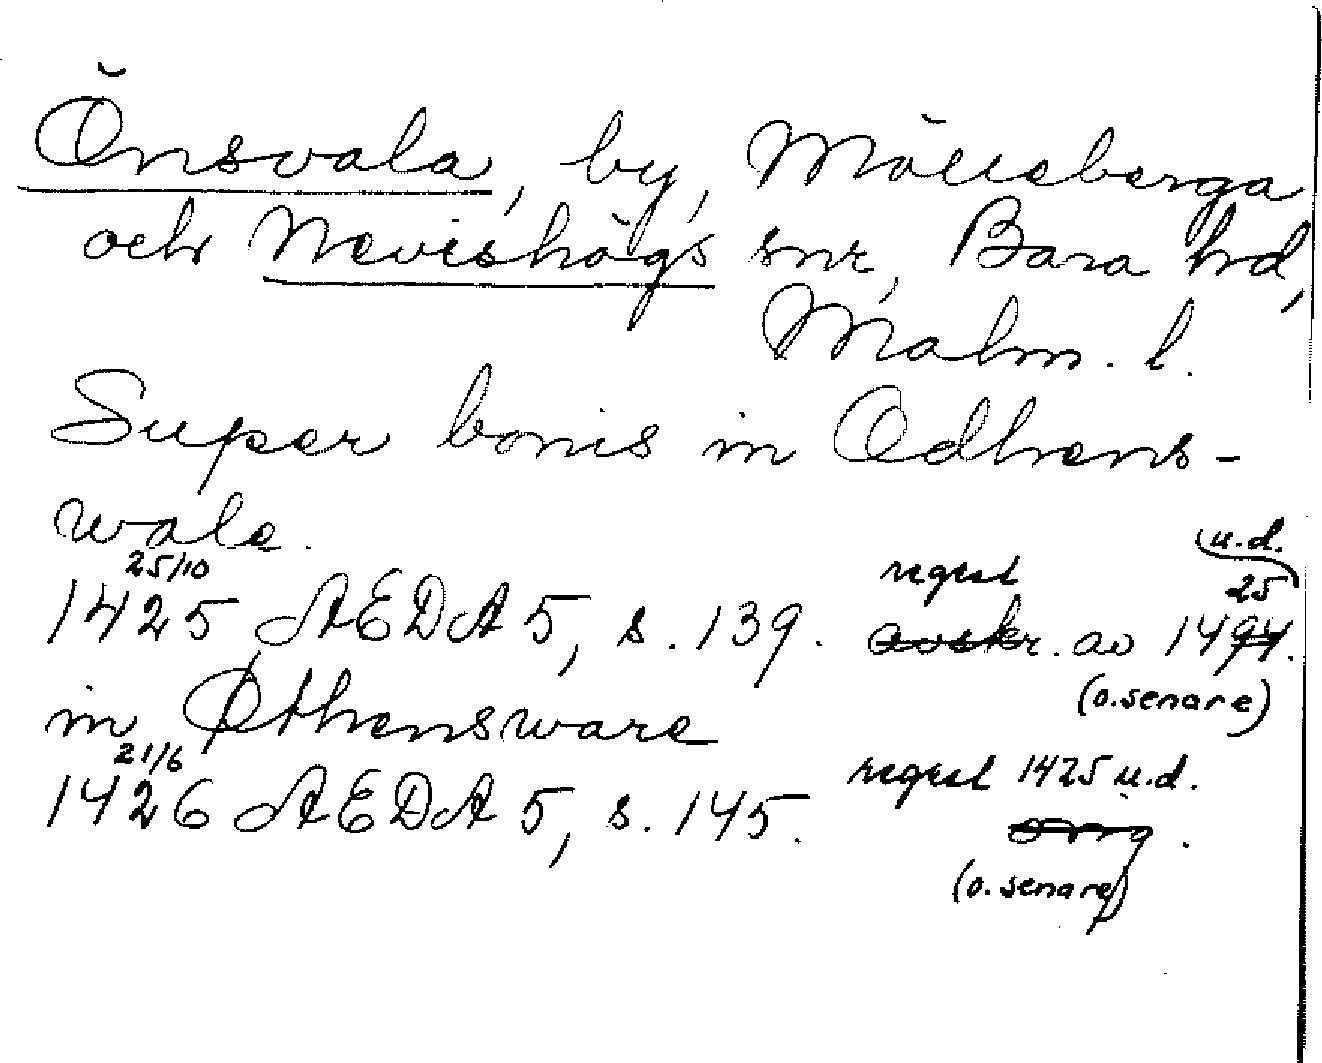 Önsvala, by, Mölleberga
och Nevishögs snr, Bara hd,
Malm. l.
Super bonis in Odhens-
wale.
25/10 regest u.d.
1425 ÆDA 5, s. 139. avskr. av 1494. 25
(o. senare)
in Øthensware
21/6 regest 1425 u.d.
1426 ÆDA 5, s. 145. orig.
(o. senare)